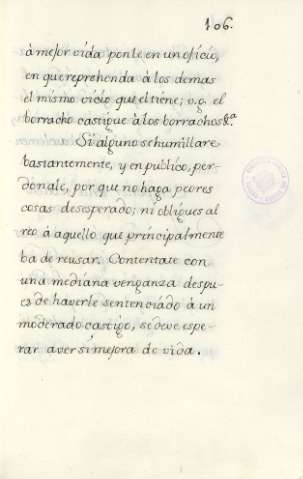 106.
à mejor vida ponle en un oficio,
en que reprehenda à los demas
el mismo vicio que el tiene; v.g. el
borracho castigue à los borrachos &.a
Si alguno se humillare
bastantemente, y en publico, per-
donale, por que no haga peores
cosas desesperado; ni obligues al
reo à aquello que principalmente
ha de reusar. Contentate con
una mediana venganza despu-
es de haverle sentenciado à un
moderado castigo, se deve espe-
rar a ver si mejora de vida.